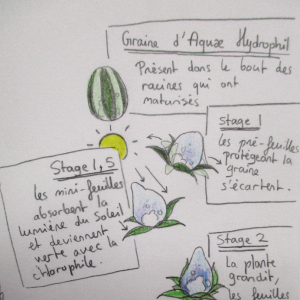 Graine d'Aquæ Hydrophit
Présent dans le bout des
racines qui ont
maturisés
Stage 1
Les pré-feuilles
protégeant la
graine
s'écartent.
Stage 1,5
Les mini-feuilles
absorbent la
lumière du Soleil
et deviennent
verte avec la
chlorophile.
Stage 2
La plante
grandit,
feuilles